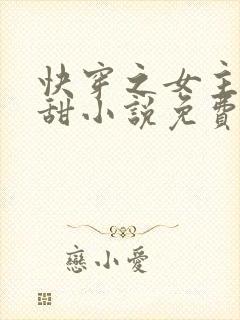 快穿之女主
甜小說免費
戀小愛